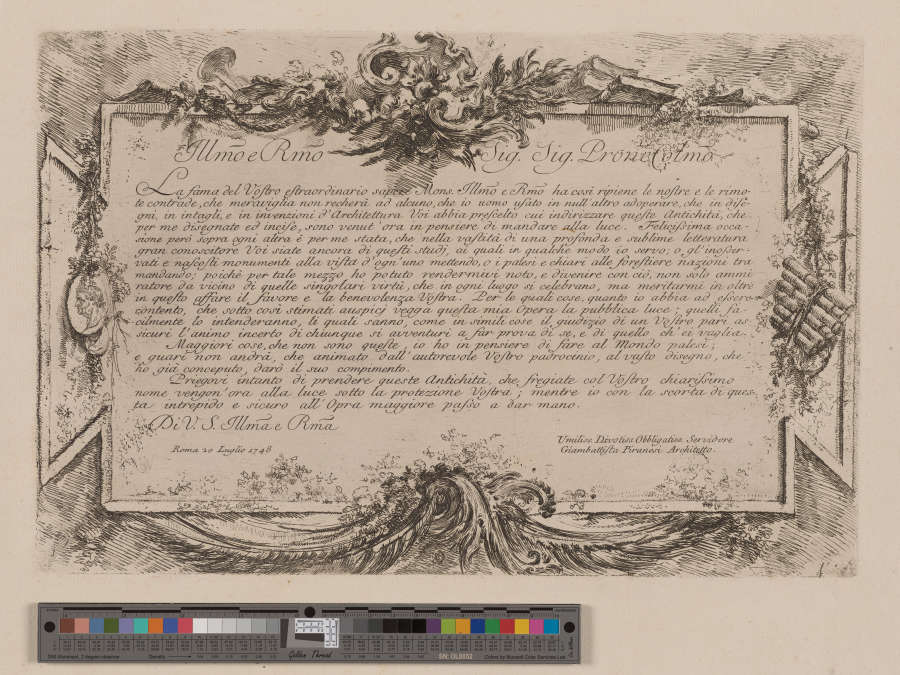 Illm̃o e Rm̃o Sig. Sig. Prõne Colmõ
La fama del Vostro estraordinario sapere Mons. Illm̃o e Rm̃o ha così ripiene le nostre e le rimo-
te contrade, che meraviglia non recherà ad alcuno, che io uomo usato in null'altro adoperare, che in dise-
gni, in intagli, e in invenzioni d'Architettura Voi abbia prescelto cui indirizzare queste Antichità, che
per me disegnate ed incise, sono venut'ora in pensiere di mandare alla luce. Felicissima occa-
sione però sopra ogni altra è per me stata, che nella vastità di una profonda e sublime letteratura
gran conoscitore Voi siate ancora di questi studj, ai quali in qualche modo io servo; o gl'inosser-
vati e nascosti monumenti alla vista d'ogn'uno mettendo, o i palesi e chiari alle forestiere nazioni tra
mandando; poichè per tale mezzo ho potuto rendermivi noto, e divenire con ciò, non solo ammi
ratore da vicino di quelle singolari virtù, che in ogni luogo si celebrano, ma meritarmi in oltre
in questo affare il favore e la benevolenza Vostra. Per le quali cose, quanto io abbia ad essere
contento, che sotto così stimati auspicj vegga questa mia Opera la pubblica luce; quelli fa-
cilmente lo intenderanno, li quali sanno, come in simili cose il giudizio di un Vostro pari as-
sicuri l'animo incerto di chiunque si avventuri a far prova di se, in quello ch'ei vaglia.
Maggiori cose, che non sono queste, io ho in pensiere di fare al Mondo palesi;
e guari non andrà, che animato dall'autorevole Vostro padrocinio, al vasto disegno, che
ho già conceputo, darò il suo compimento.
Priegovi intanto di prendere queste Antichità, che, fregiate col Vostro chiarissimo
nome vengon'ora alla luce sotto la protezione Vostra; mentre io con la scorta di ques-
ta intrepido e sicuro all'Opra maggiore passo a dar mano.
Di V. S. Illm̃a e Rm̃a
Roma 20 Luglio 1748
Umiliss. Divotiss. Obbligatiss. Servidore
Giambattista Piranesi Architetto.
Golden Thread